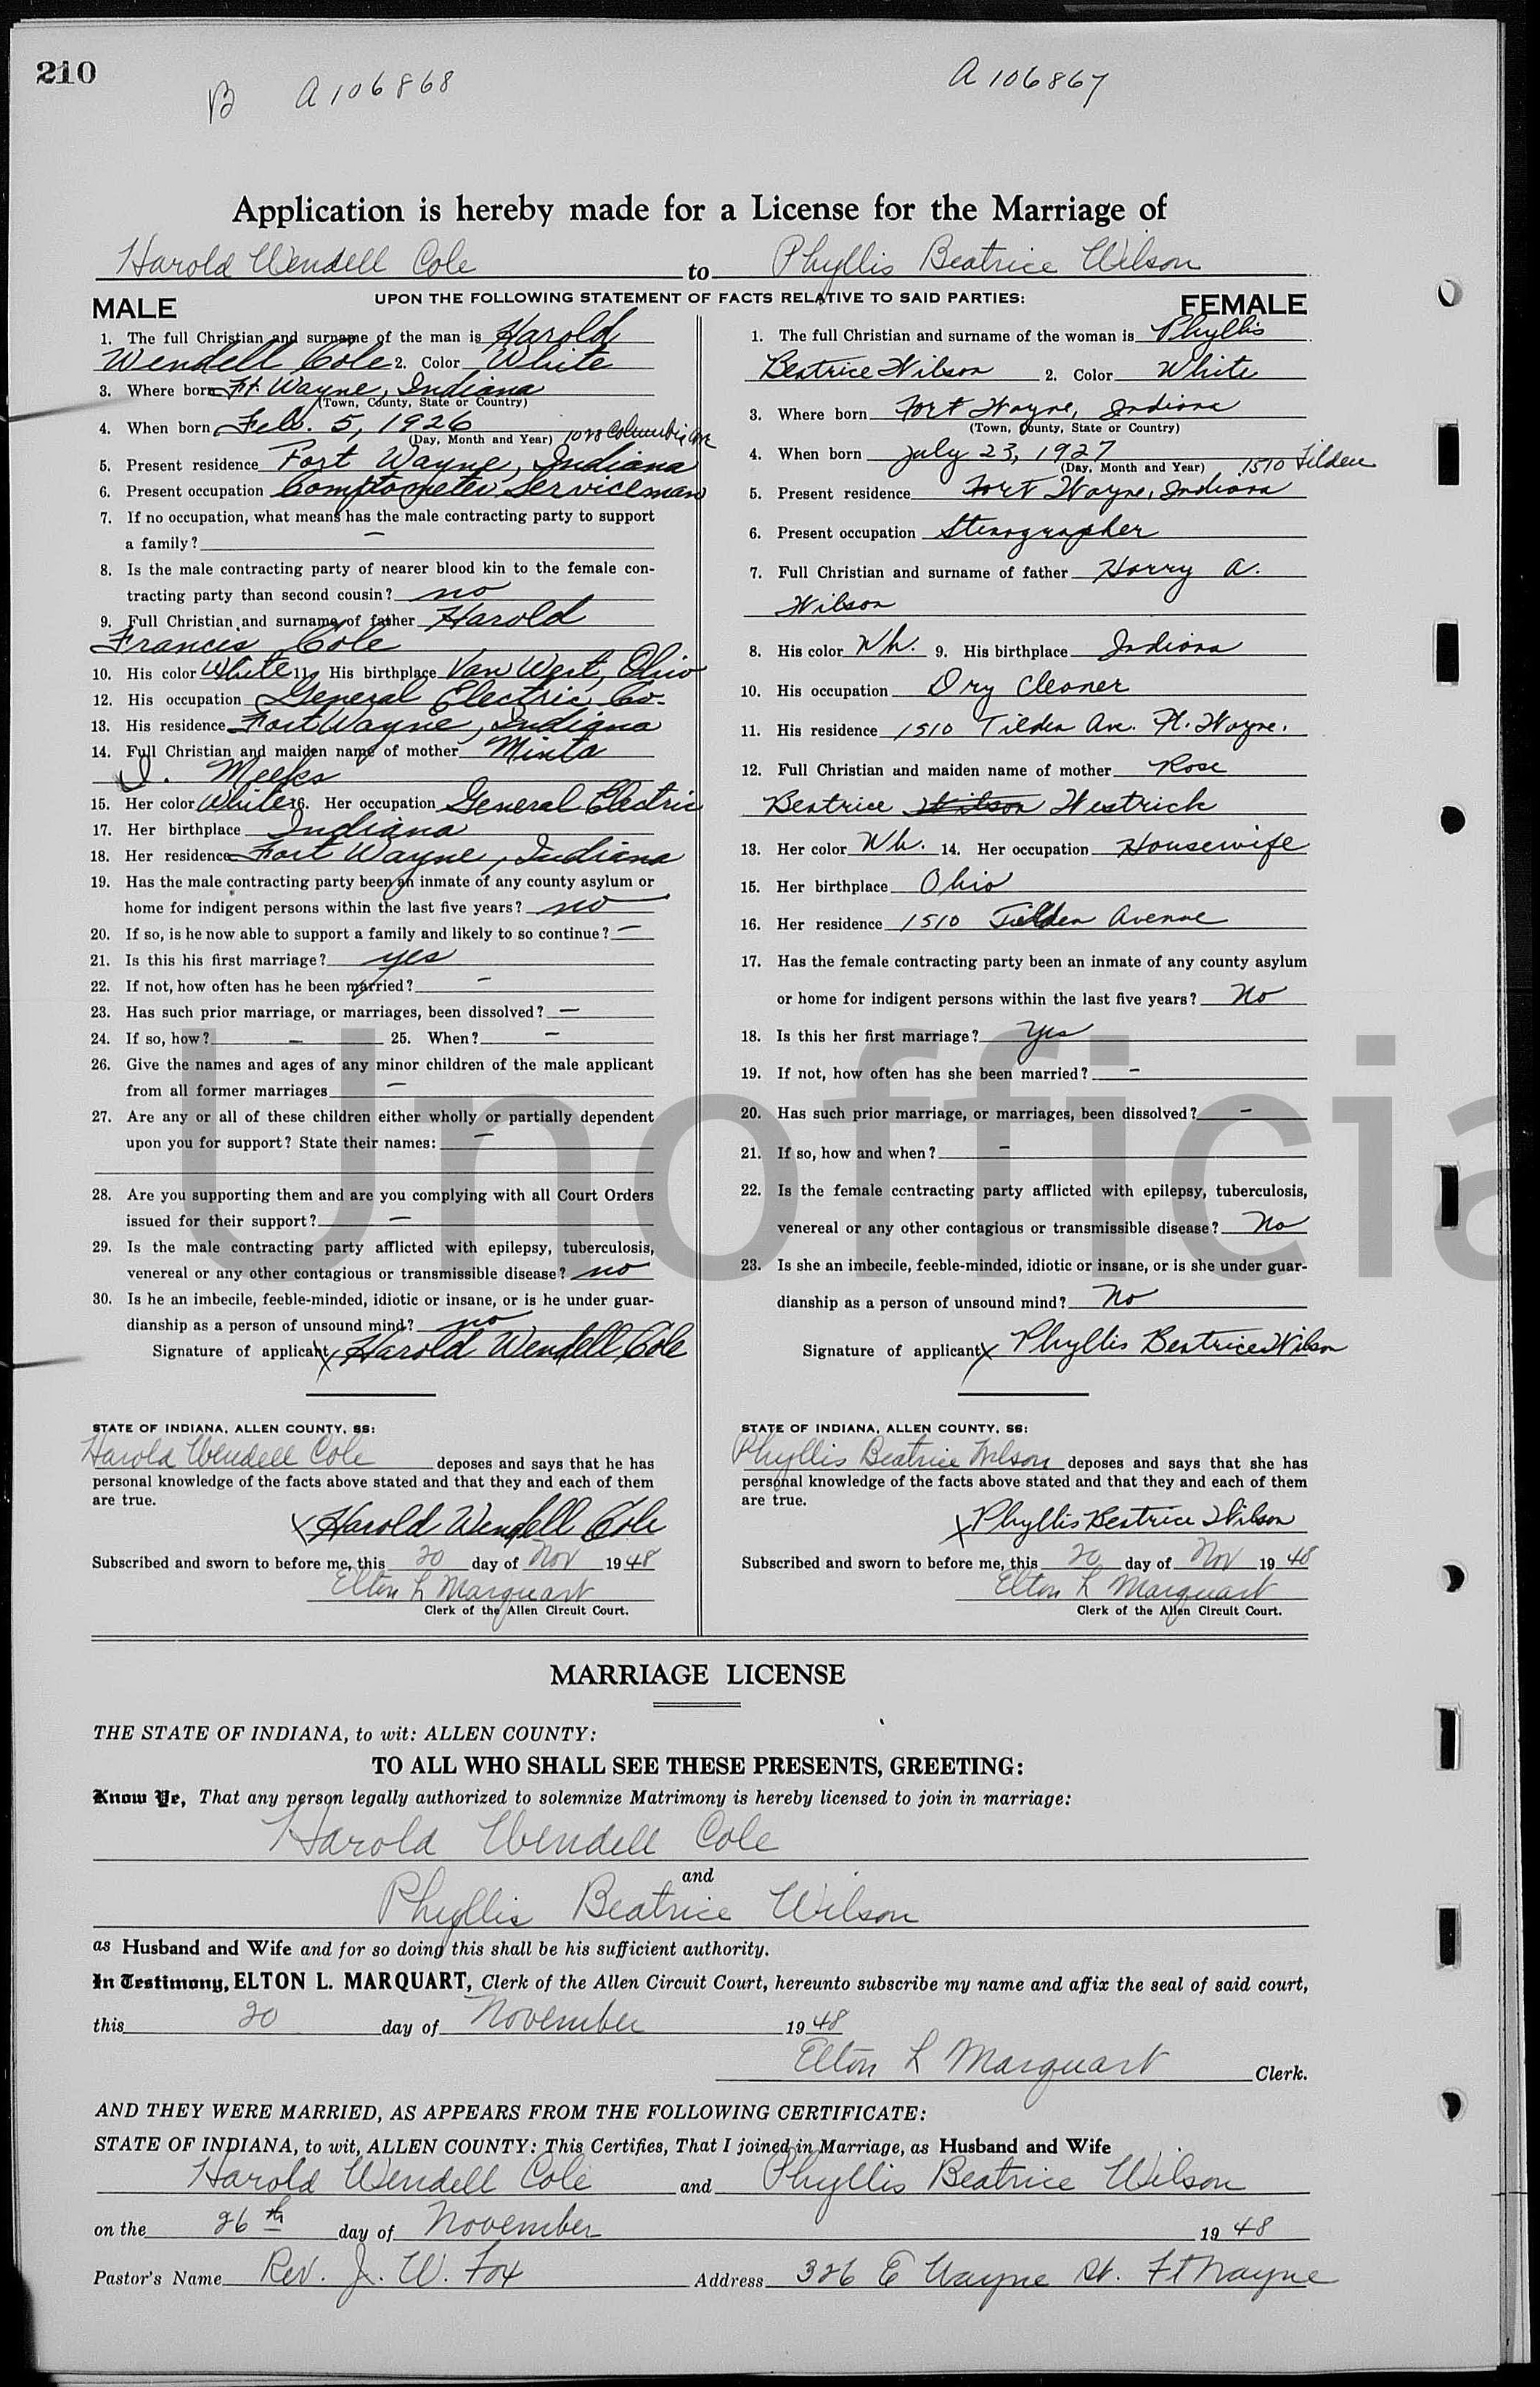 210
B A106868 A106867
Application is hereby made for a License for the Marriage of
Harold Wendell Cole to Phyllis Beatrice Wilson
UPON THE FOLLOWING STATEMENT OF FACTS RELATIVE TO SAID PARTIES:
MALE
1. The full Christian and surname of the man is Harold
Wendell Cole 2. Color White
3. Where born Ft. Wayne, Indiana
(Town, County, State or Country)
4. When born Feb. 5, 1926
(Day, Month and Year) 1028 Columbia Ave
5. Present residence Fort Wayne, Indiana
6. Present occupation Comptometer Serviceman
7. If no occupation, what means has the male contracting party to support
a family? —
8. Is the male contracting party of nearer blood kin to the female con-
tracting party than second cousin? no
9. Full Christian and surname of father Harold
Francis Cole
10. His color White 11. His birthplace Van Wert, Ohio
12. His occupation General Electric Co.
13. His residence Fort Wayne, Indiana
14. Full Christian and maiden name of mother Minta
J. Meeks
15. Her color White 16. Her occupation General Electric
17. Her birthplace Indiana
18. Her residence Fort Wayne, Indiana
19. Has the male contracting party been an inmate of any county asylum or
home for indigent persons within the last five years? no
20. If so, is he now able to support a family and likely to so continue? —
21. Is this his first marriage? yes
22. If not, how often has he been married? -
23. Has such prior marriage, or marriages, been dissolved? —
24. If so, how? — 25. When? —
26. Give the names and ages of any minor children of the male applicant
from all former marriages —
27. Are any or all of these children either wholly or partially dependent
upon you for support? State their names: —
28. Are you supporting them and are you complying with all Court Orders
issued for their support? —
29. Is the male contracting party afflicted with epilepsy, tuberculosis,
venereal or any other contagious or transmissible disease? no
30. Is he an imbecile, feeble-minded, idiotic or insane, or is he under guar-
dianship as a person of unsound mind? no
Signature of applicant x Harold Wendell Cole
STATE OF INDIANA, ALLEN COUNTY, SS:
Harold Wendell Cole deposes and says that he has
personal knowledge of the facts above stated and that they and each of them
are true.
x Harold Wendell Cole
Subscribed and sworn to before me, this 20 day of Nov 1948
Elton L Marquart
Clerk of the Allen Circuit Court.
FEMALE
1. The full Christian and surname of the woman is Phyllis
Beatrice Wilson 2. Color White
3. Where born Fort Wayne, Indiana
(Town, County, State or Country)
4. When born July 23, 1927
(Day, Month and Year) 1510 Tilden
5. Present residence Fort Wayne, Indiana
6. Present occupation Stenographer
7. Full Christian and surname of father Harry A.
Wilson
8. His color Wh. 9. His birthplace Indiana
10. His occupation Dry Cleaner
11. His residence 1510 Tilden Ave. Ft. Wayne.
12. Full Christian and maiden name of mother Rose
Beatrice Wilson Westrick
13. Her color Wh. 14. Her occupation Housewife
15. Her birthplace Ohio
16. Her residence 1510 Tilden Avenue
17. Has the female contracting party been an inmate of any county asylum
or home for indigent persons within the last five years? No
18. Is this her first marriage? Yes
19. If not, how often has she been married? -
20. Has such prior marriage, or marriages, been dissolved? -
21. If so, how and when? -
22. Is the female contracting party afflicted with epilepsy, tuberculosis,
venereal or any other contagious or transmissible disease? No
23. Is she an imbecile, feeble-minded, idiotic or insane, or is she under guar-
dianship as a person of unsound mind? No
Signature of applicant x Phyllis Beatrice Wilson
STATE OF INDIANA, ALLEN COUNTY, SS:
Phyllis Beatrice Wilson deposes and says that she has
personal knowledge of the facts above stated and that they and each of them
are true.
x Phyllis Beatrice Wilson
Subscribed and sworn to before me, this 20 day of Nov 1948
Elton L Marquart
Clerk of the Allen Circuit Court.
Unofficia
MARRIAGE LICENSE
THE STATE OF INDIANA, to wit: ALLEN COUNTY:
TO ALL WHO SHALL SEE THESE PRESENTS, GREETING:
Know Ye, That any person legally authorized to solemnize Matrimony is hereby licensed to join in marriage:
Harold Wendell Cole
and
Phyllis Beatrice Wilson
as Husband and Wife and for so doing this shall be his sufficient authority.
In Testimony, ELTON L. MARQUART, Clerk of the Allen Circuit Court, hereunto subscribe my name and affix the seal of said court,
this 20 day of November 1948
Elton L Marquart Clerk.
AND THEY WERE MARRIED, AS APPEARS FROM THE FOLLOWING CERTIFICATE:
STATE OF INDIANA, to wit, ALLEN COUNTY: This Certifies, That I joined in Marriage, as Husband and Wife
Harold Wendell Cole and Phyllis Beatrice Wilson
on the 26th day of November 1948
Pastor's Name Rev. J. W. Fox Address 326 E Wayne St. Ft Wayne